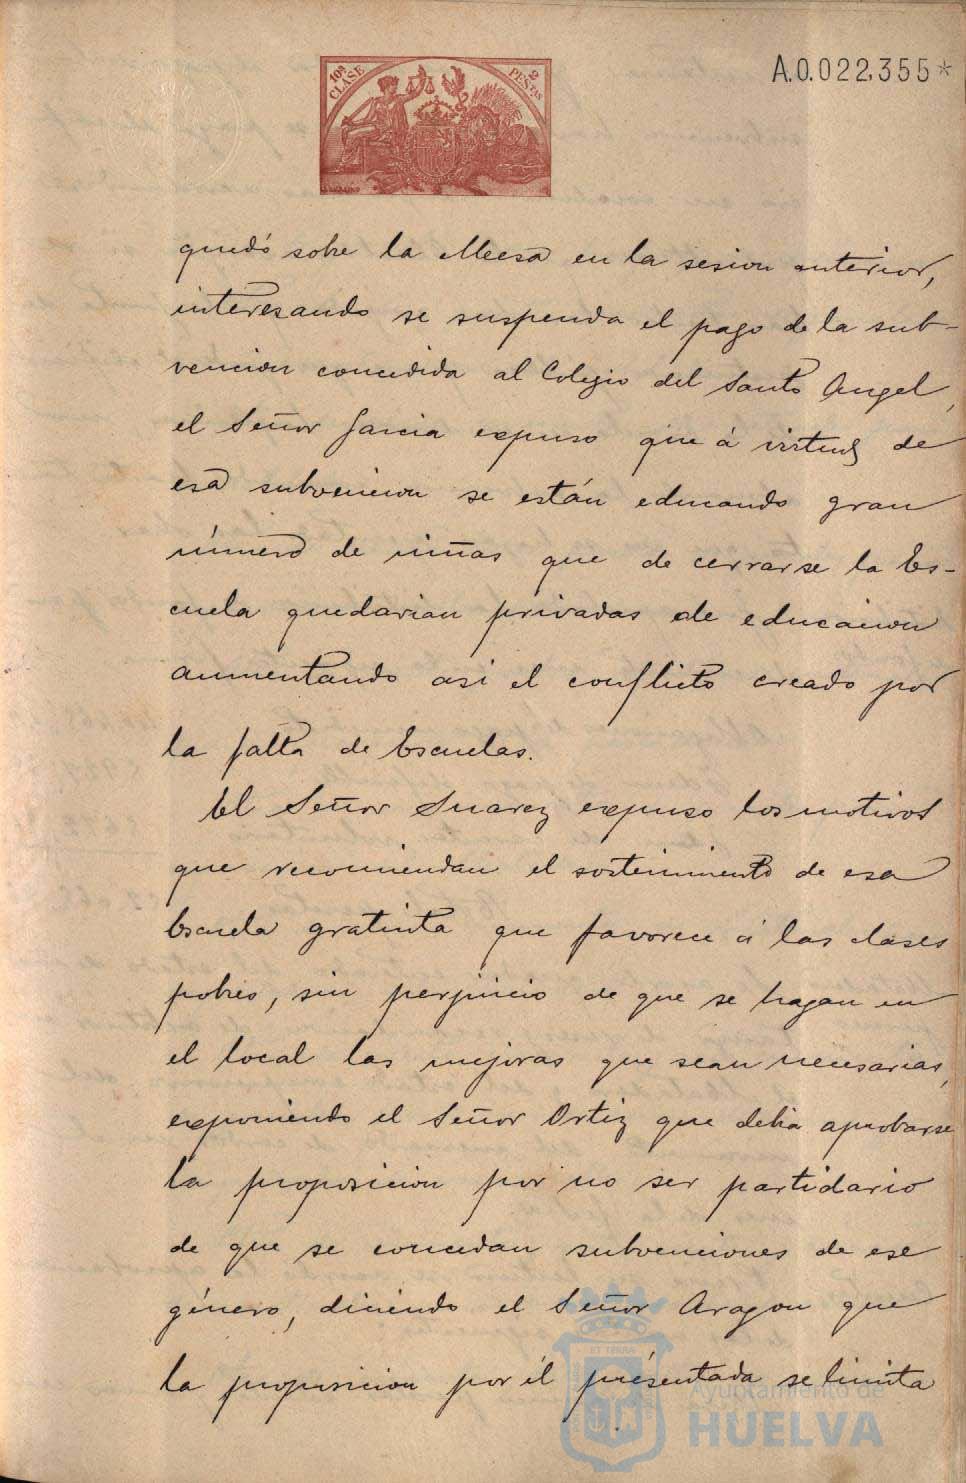 10ª CLASE 2 PESTAS
A.0.022,355*
quedó sobre la Meesa en la sesion anterior,
interesando se suspenda el pago de la sub-
vencion concedida al Colegio del Santo Angel,
el Señor Garcia expuso que á virtud de
esa subvencion se están educando gran
número de niñas que de cerrarse la Es-
cuela quedarian privadas de educacion
aumentando asi el conflicto creado por
la falta de Escuelas.
El Señor Suarez expuso los motivos
que recomiendan el sostenimiento de esa
Escuela gratuita que favorece á las clases
pobres, sin perjuicio de que se hagan en
el local las mejoras que sean necesarias,
exponiendo el Señor Ortiz que debia aprobarse
la proposicion por no ser partidario
de que se concedan subvenciones de ese
género, diciendo el Señor Aragon que
la proposicion por él presentada se limita
ET TERRA
Ayuntamiento de
HUELVA